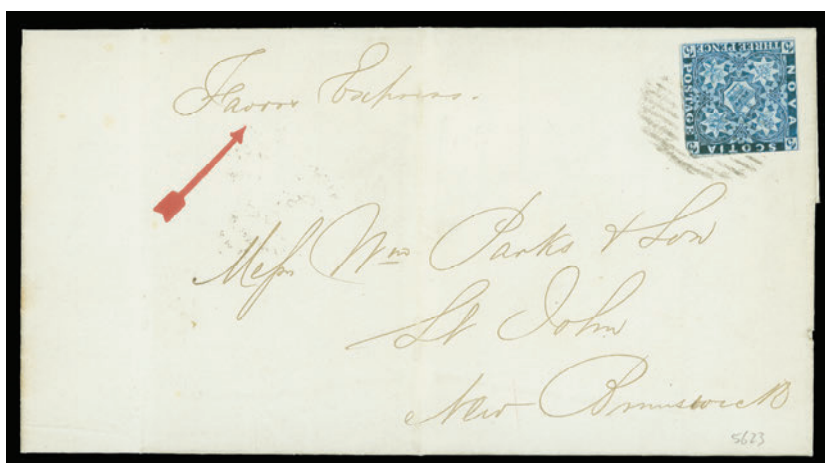 Favor Express.
THREE PENCE
NOVA
SCOTIA
POSTAGE
3
3
3
3
Messrs Wm Parks & Son
St John
New Brunswick
5623